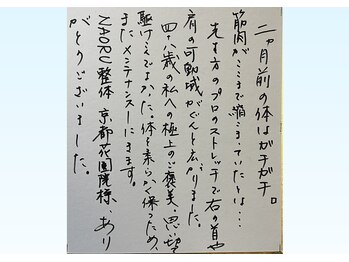 二ヶ月前の体はガチガチ。
筋肉がここまで縮こまっていたとは…
先生方のプロのストレッチで右の首や
肩の可動域がぐんと広がりました。
四十八歳の私への極上のご褒美。思い切って
駆けこんでよかった。体を柔らかく保つため、
またメンテナンスしにきます。
NAORU整体 京都花園院様、あり
がとうございました。